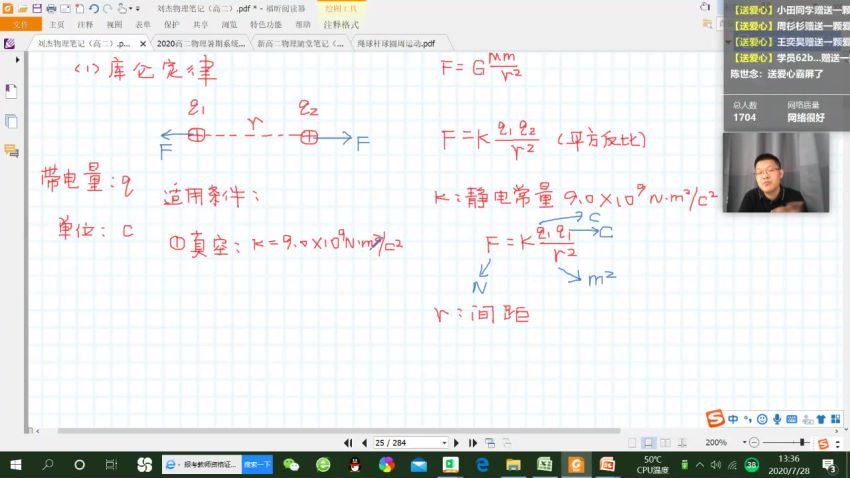 刘杰物理笔记(高二).pdf * - 福昕阅读器
绘图工具
文件 主页 注释 视图 表单 保护 共享 浏览 特色功能 帮助 注释格式
刘杰物理笔记(高二).p... × 2020高二物理暑期系统... 新高二物理随堂笔记(... 绳球杆球圆周运动.pdf
【送爱心】小田同学赠送一颗爱
【送爱心】周杉杉赠送一颗爱
【送爱心】王奕昊赠送一颗爱
【送爱心】学员62b...赠送一
陈世念: 送爱心霸屏了
总人数 网络质量
1704 网络很好
(1) 库仑定律
F=G Mm/r²
q₁ q₂
r
F F
F=K q₁q₂/r² (平方反比)
带电量: q
适用条件:
K: 静电常量 9.0×10⁹ N·m²/C²
单位: C
① 真空: K=9.0×10⁹N·m²/C²
F=K q₁q₁/r²
C
C
N
m²
r: 间距
中
25 / 284
200%
报考教师资格证... 搜索一下
50℃
CPU温度
38
13:36
2020/7/28
3